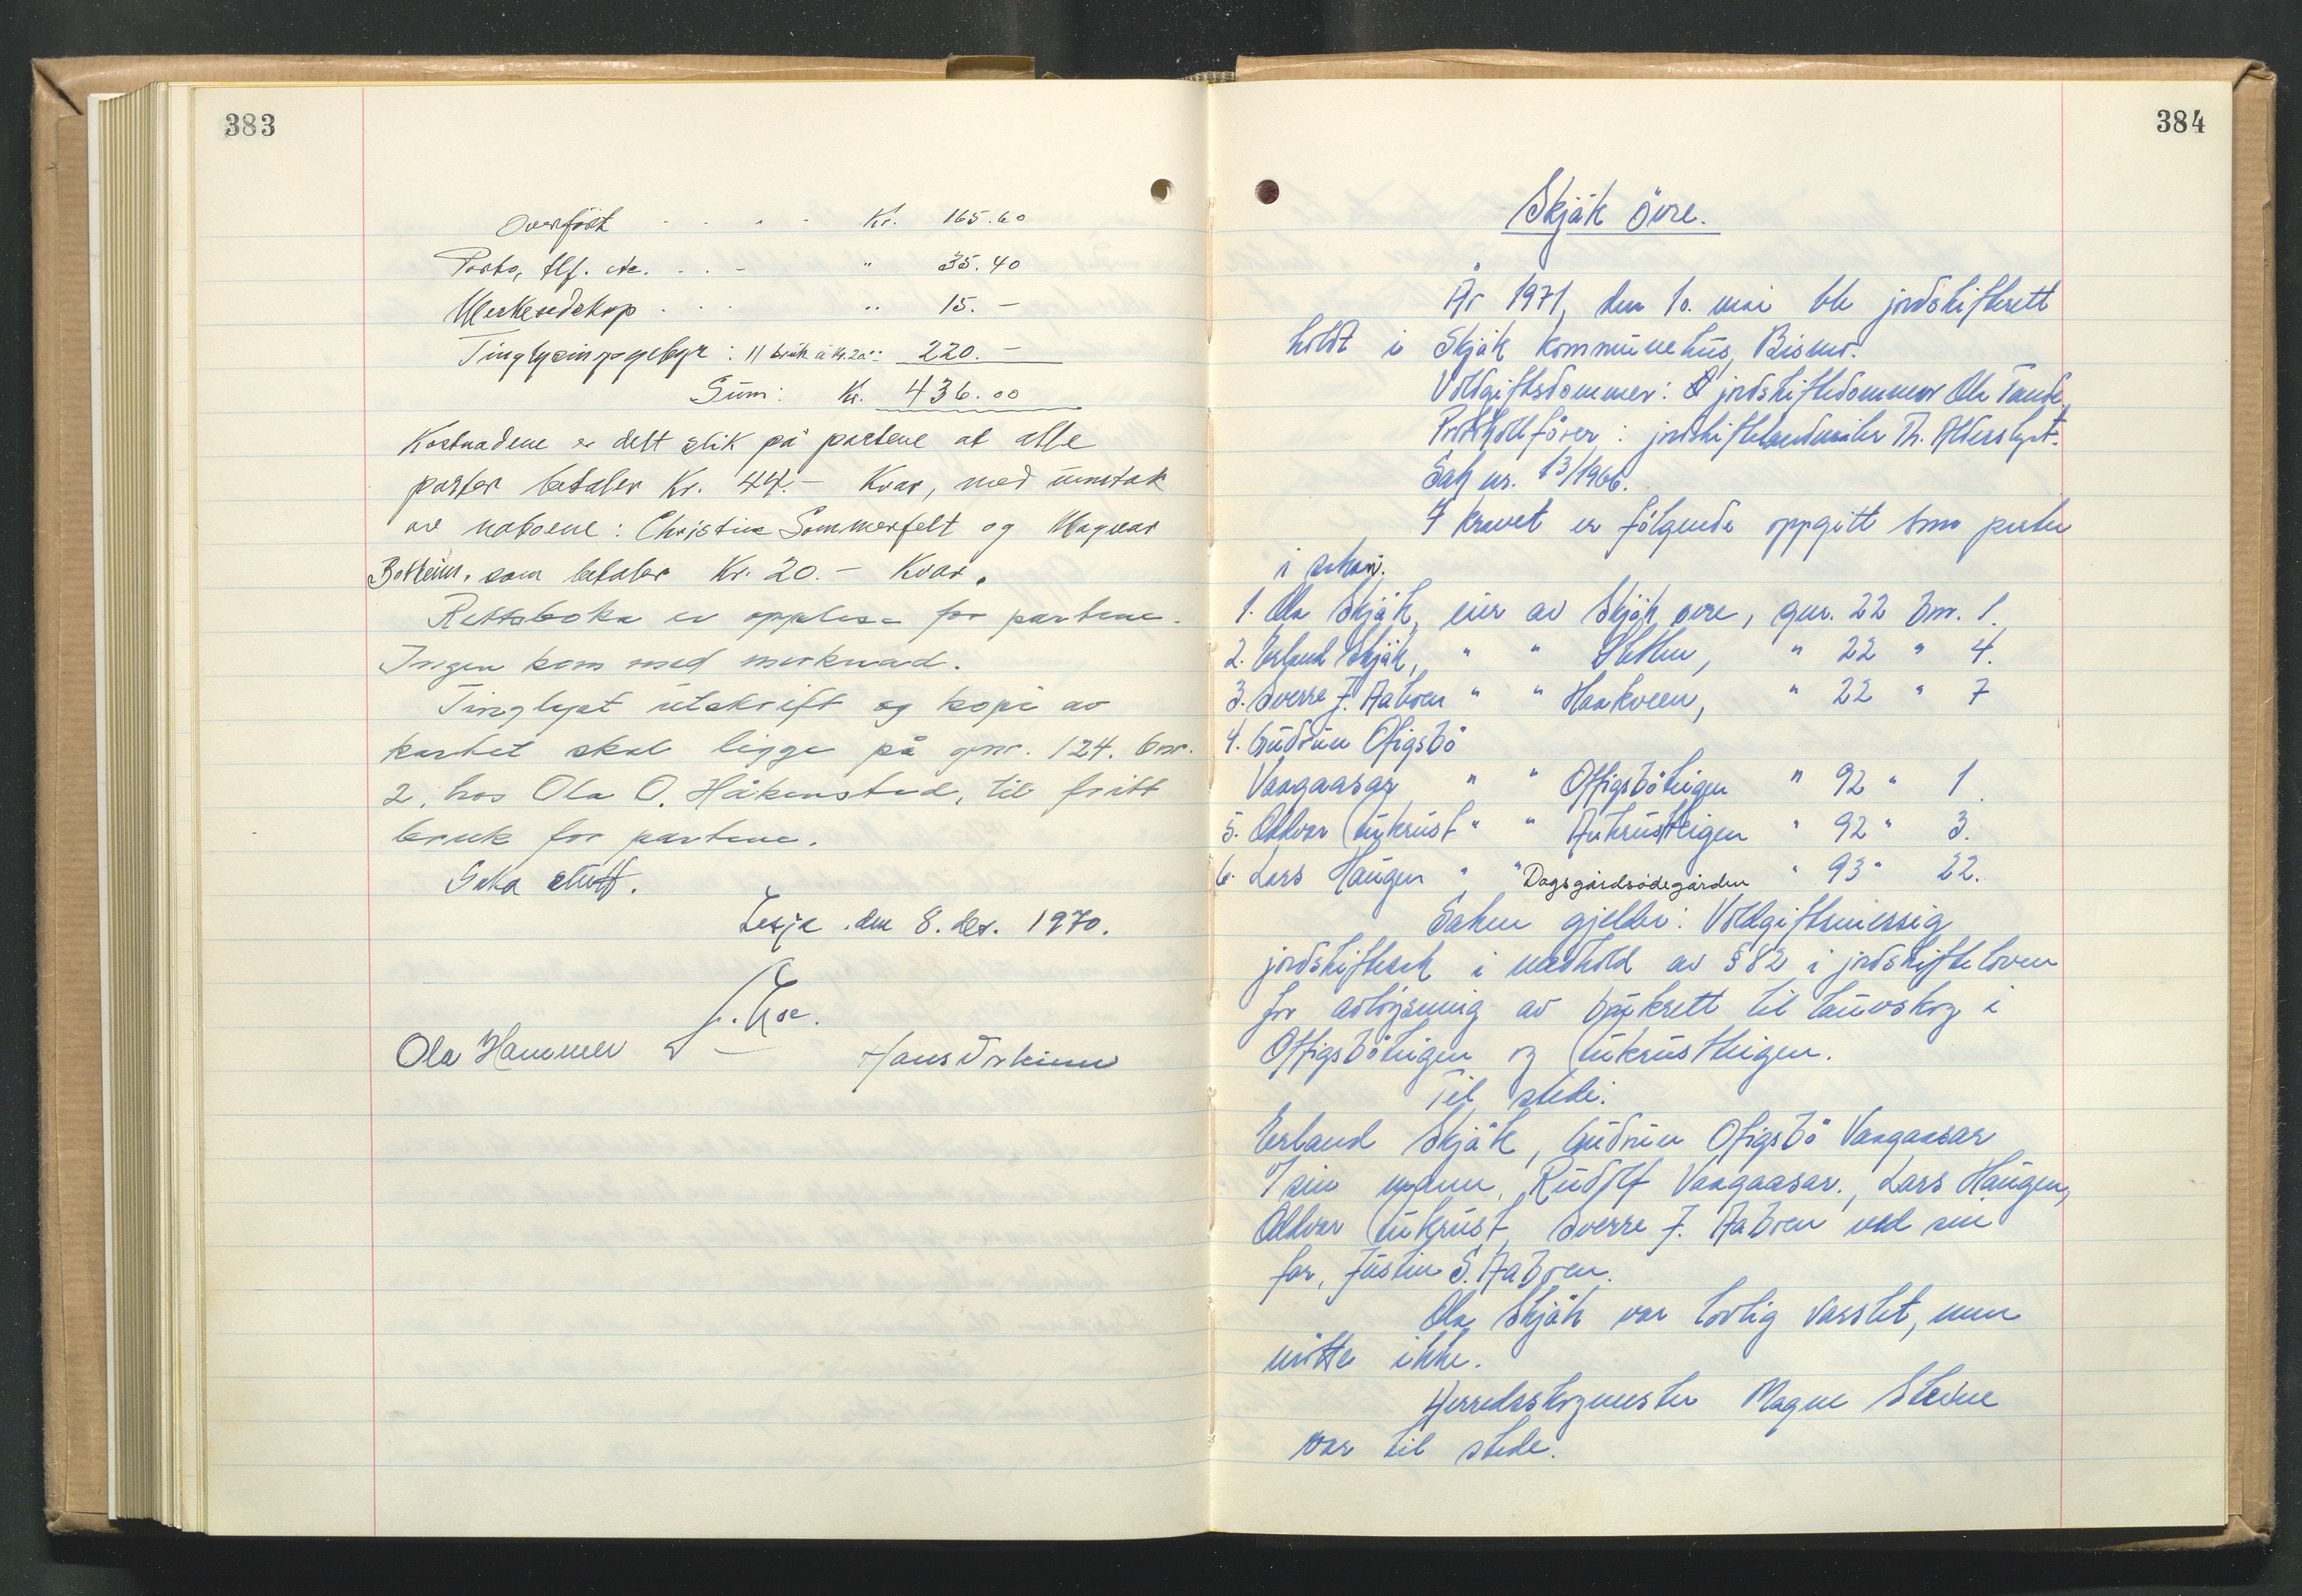 383
Overført . . . . Kr. 165.60
Porto, tlf. etc. . . . " 35.40
Merkeredskap . . . " 15.–
Tinglysingsgebyr: 11 bruk à kr. 20.– 220.–
Sum: Kr. 436.00
Kostnadene er delt slik på partene at alle
parter betaler Kr. 44.– Kvar, med unntak
av naboene: Christine Sommerfelt og Magnar
Botheim, som betaler Kr. 20.– Kvar.
Rettsboka er opplese for partene.
Ingen kom med merknad.
Tinglyst utskrift og kopi av
kartet skal ligge på gnr. 124. bnr.
2, hos Ola O. Håkenstad, til fritt
bruk for partene.
Saka slutt.
Lesja, den 8. des. 1970.
Ola Hammer
384
Skjåk øvre.
År 1971, den 10. mai ble jordskifterett
holdt i Skjåk kommunehus, Bismo.
Voldgiftsdommer: jordskiftedommer Ola Tande.
Protokollfører: jordskiftelandmåler Th.
Sak nr. 13/1966.
I kravet er følgende oppgitt som parter
i saken:
1. Ola Skjåk, eier av Skjåk øvre, gnr. 22 bnr. 1.
2. Erland Skjåk, " " " 22 " 4.
3. Sverre J. Aaboen " " Haakveen, " 22 " 7
4. Gudrun Ofigsbø
Vaagaasar " " Offigsbøteigen " 92 " 1.
5. Oddvar Aukrust " " Aukrustteigen " 92 " 3.
6. Lars Haugen " " Dagsgårdsødegården " 93 " 22.
Saken gjelder: Voldgiftsmessig
jordskiftesak i medhold av § 82 i jordskifteloven
for avløysning av bruksrett til lauvskog i
Offigsbøteigen og Aukrustteigen.
Til stede:
Erland Skjåk, Gudrun Ofigsbø Vaagaasar
v/sin mann, Rudolf Vaagaasar, Lars Haugen,
Oddvar Aukrust, Sverre J. Aaboen ved sin
far, Justin S. Aaboen.
Ola Skjåk var lovlig varslet, men
møtte ikke.
Herredsskogmester Magne Steine
var til stede.